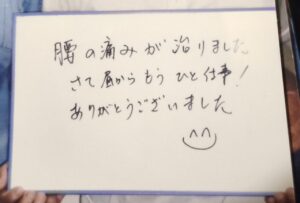 腰の痛みが治りました
さて昼からもうひと仕事!
ありがとうございました
^^